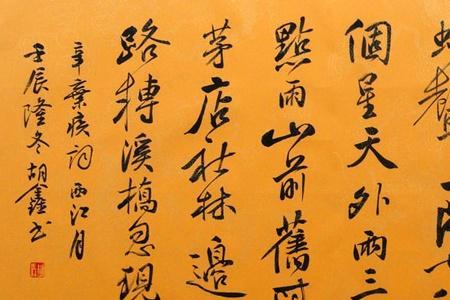 蛙聲一
個星天外兩三
點雨山前舊時
茅店社林邊
路轉溪橋忽現
辛棄疾詞西江月
壬辰隆冬胡鑫书